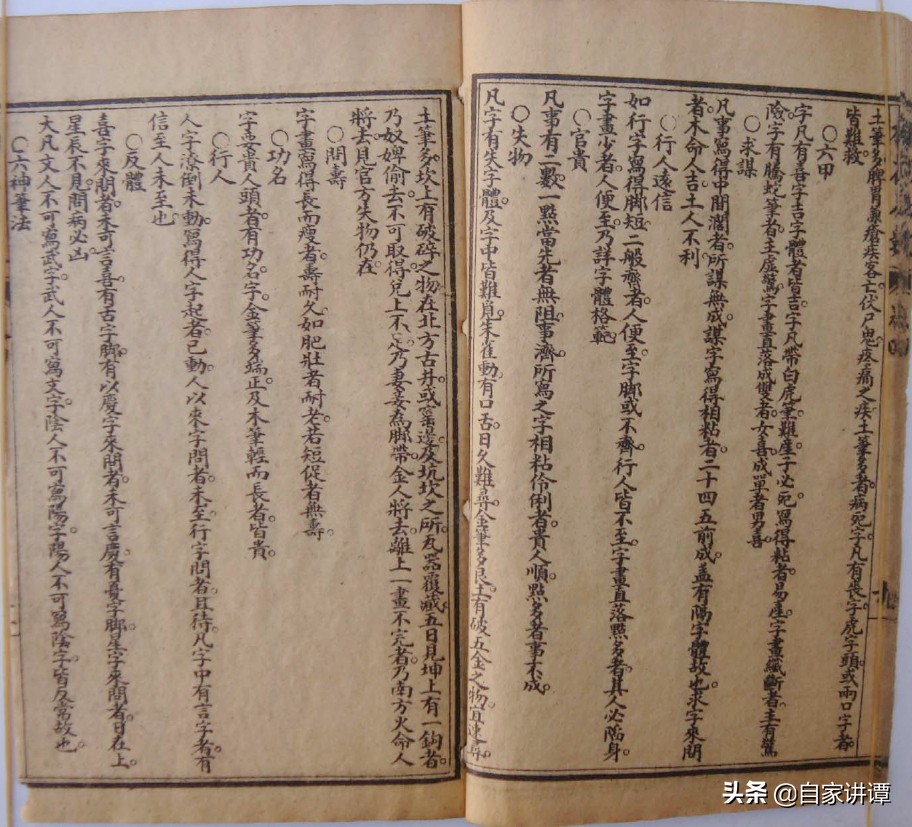 土筆多脾胃鼻瘡疾客亡伏尸鬼疼痛之疾土筆多者病死字凡有喪字虎字頭或兩口字者
皆難救
○六甲
字凡有喜字吉字體者皆吉字凡帶白虎筆難產子必死寫得粘者易產字畫纖斷者主有驚
險字有騰蛇筆者主虛驚字畫直落成雙者女喜成單者男喜
○求謀
凡事寫得中間濶者所謀無成謀字寫得相粘者二十四五前成蓋有陽字體故也求字來問
者木命人吉土人不利
○行人遠信
如行字寫得脚短二般齊者人便至字脚或不齊行人皆不至字畫直落點多者其人必陷身
字畫少者人便至乃詳字體格範
○官貴
凡事有二數一點當先者無阻事濟所寫之字相粘伶俐者貴人順點多者事不成
○失物
凡字有失字體及字中皆難覓朱雀動有口舌日久難尋金筆多艮土有破五金之物宜速尋
土筆多坎上有破碎之物在北方古井或窑邊及坑坎之所瓦器覆藏五日見坤上有一鈎者
乃奴婢偷去不可取得兌上不足乃妻妾為脚帶金人將去離上一畫不完者乃南方火命人
將去見官方失物仍在
○問壽
字畫寫得長而瘦者壽耐久如肥壯者耐老若短促者無壽
○功名
字要貴人頭者有功名字金筆多端正及木筆輕而長者皆貴
○行人
人字潦倒未動寫得人字起者已動人以來字問者未至行字問者且待凡字中有言字者有
信至人未至也
○反體
喜字來問者未可言喜有吉字脚有以慶字來問者未可言慶有喜字脚星字來問者日在上
星辰不見問病必凶
大凡文人不可寫武字武人不可寫文字陰人不可寫陽字陽人不可寫陰字皆反常故也
○六神筆法
头条 @自家讲谭